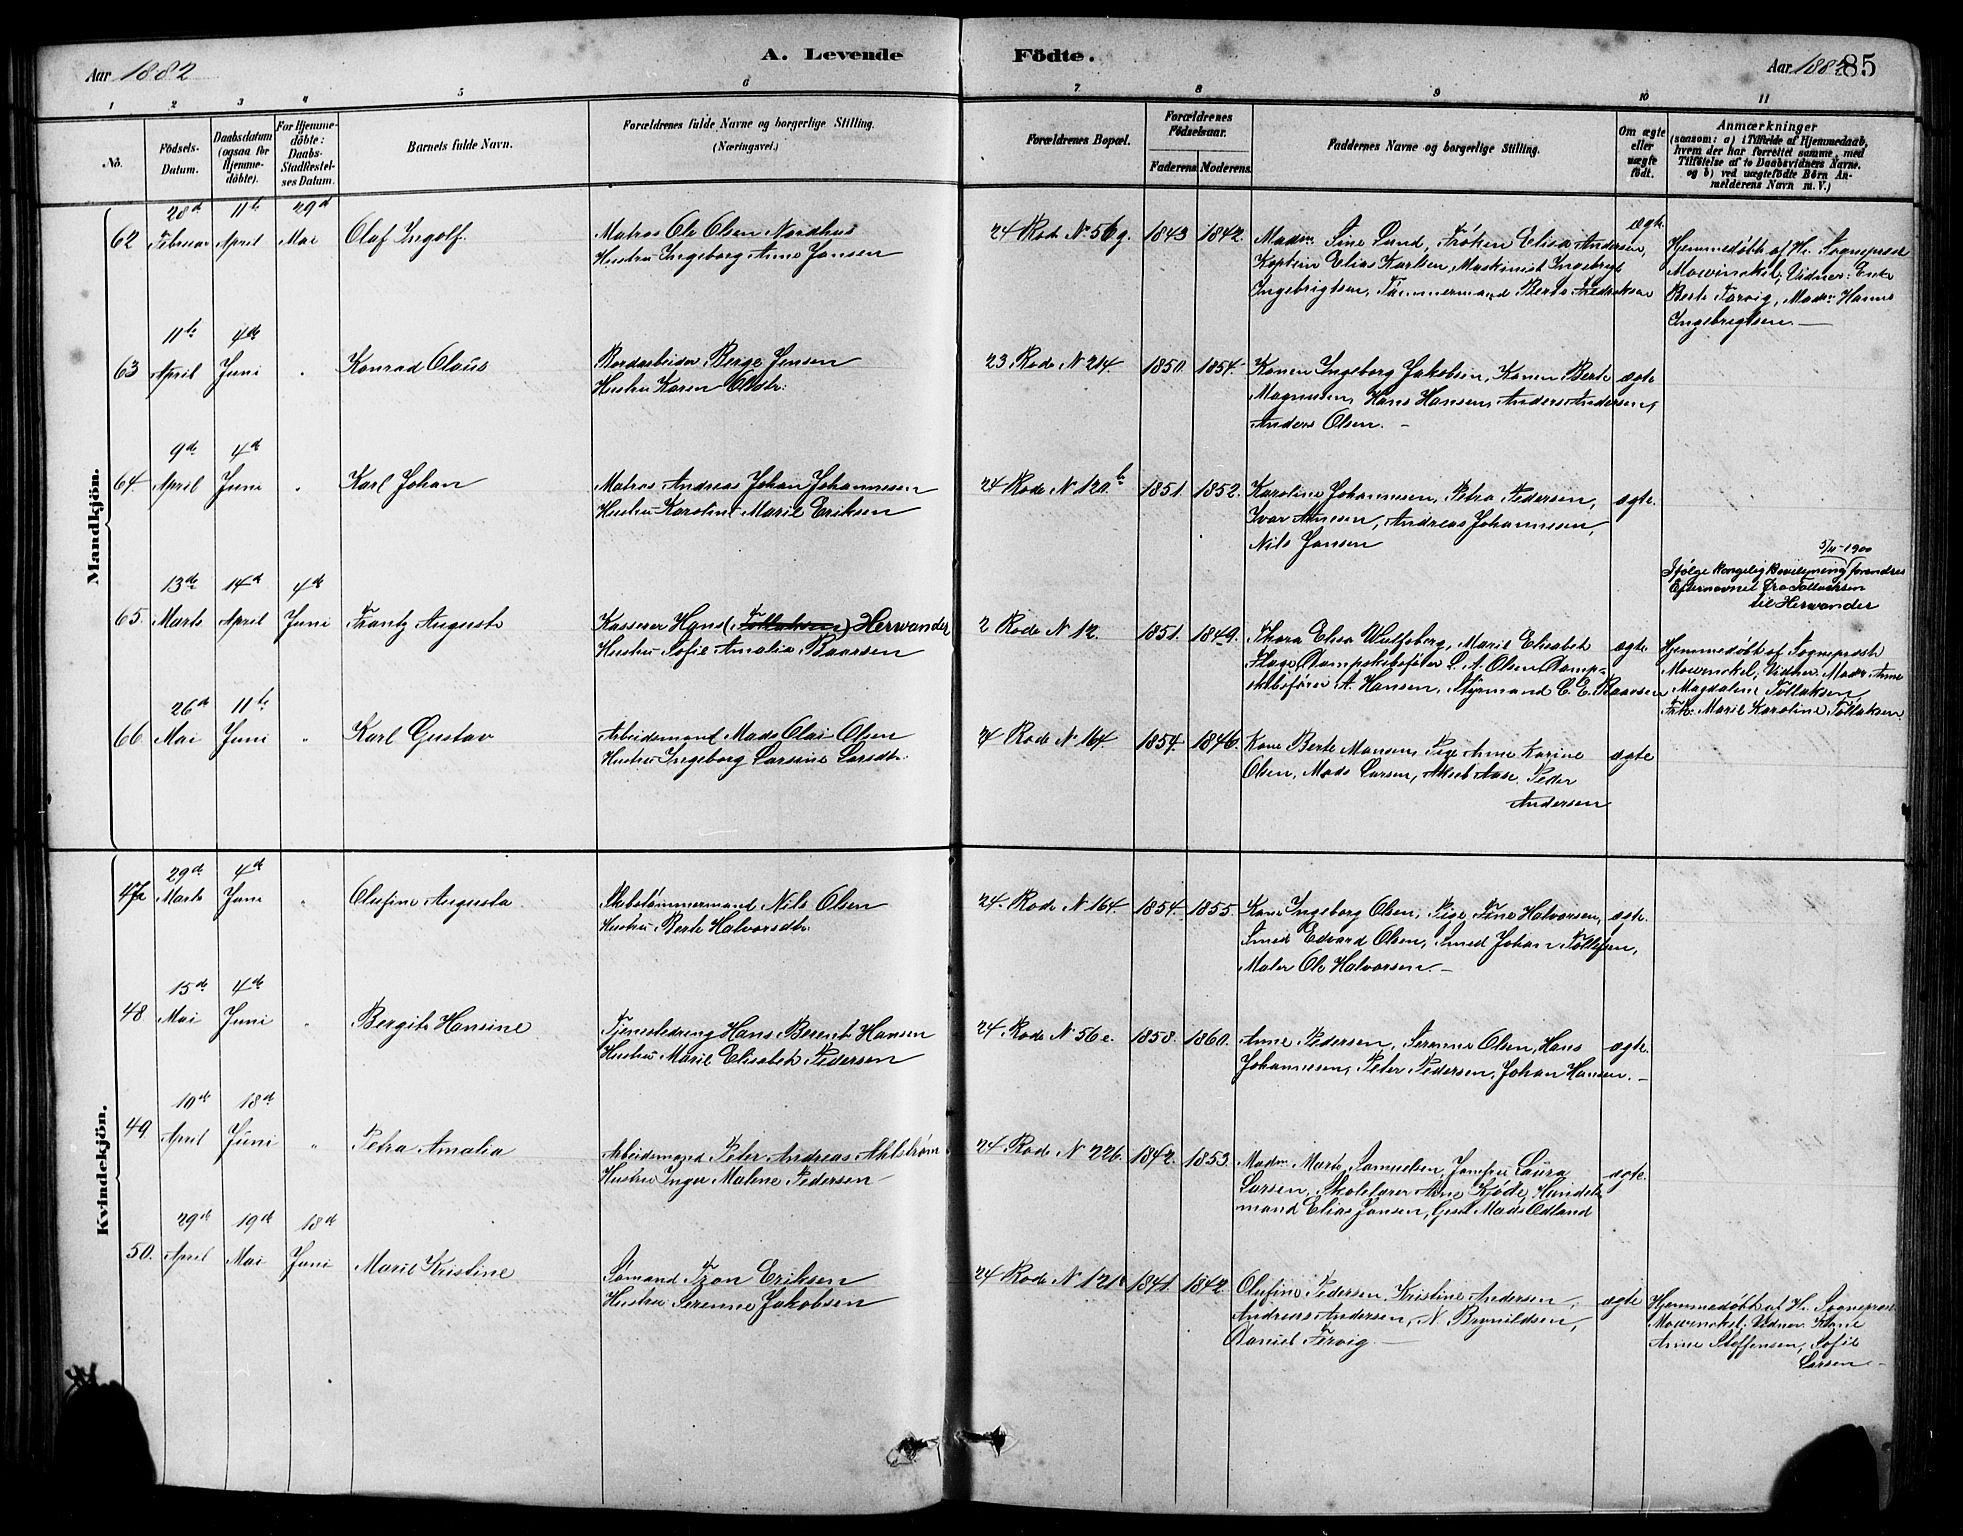 Aar 1882
A. Levende Födte.
Aar 1882
85
1 2 3 4 5 6 7 8 9 10 11
No.
Födsels-
Datum.
Daabsdatum
(ogsaa for
Hjemme-
döbte).
For Hjemme-
döbte:
Daabs-
Stadfæstel-
ses Datum.
Barnets fulde Navn.
Forældrenes fulde Navne og borgerlige Stilling.
(Næringsvei.)
Forældrenes Bopæl.
Forældrenes
Födselsaar.
Faderens. Moderens.
Faddernes Navne og borgerlige Stilling.
Om ægte
eller
uægte
födt.
Anmærkninger
(saasom: a) i Tilfælde af Hjemmedaab,
hvem der har forrettet samme, med
Tilföielse af to Daabsvidners Navne,
og b) ved uægtefödte Börn An-
melderens Navn m. V.)
Mandkjön.
28de 11te 29de
62 Februar April Mai Olaf Ingolf. Matros Ole Olsen Nordhus
Hustru Ingeborg Anne Jansen
24 Rode No 56g. 1843 1842. Madm Sine Lund, Frøken Elisa Andersen,
Kaptein Elias Karlsen, Maskinist Ingebrigt
Ingebrigtsen, Tømmermand Berte Fredriksen
ægte
Hjemmedøbt af Hr. Sogneprest
Mowinckel; Vidner: Enke
Berte Førvig, Madm Hanne
Ingebrigtsen. —
11te 4de
63 April Juni " Konrad Olaus Bordarbeider Berge Jensen
Hustru Karen Olsdtr.
23. Rode N 214 1850. 1854. Konen Ingeborg Jakobsen, Konen Berte
Magnusen, Hans Hansen, Anders Andersen,
Anders Olsen. —
ægte
9de 4de
64. April Juni " Karl Johan Matros Andreas Johan Johannesen
Hustru Karoline Marie Eriksen
24 Rode N 120.b 1851. 1852. Karoline Johannesen, Petra Pedersen,
Ivar Arnesen, Andreas Johannesen,
Nils Jansen
ægte.
13de 14de 4de
65. Marts April Juni Frantz August Kasserer Hans (Tollaksen) Herwander
Hustru Sofie Amalia Baarsen
2 Rode N 12. 1851. 1849. Thora Elisa Wulfsberg, Marie Elisabet
Hage, Dampskibsfører L. A. Olsen, Damp-
skibsfører A. Hansen, Styrmand C. E. Baarsen
ægte.
5/11-1900
Ifølge kongelig Bevilgning forandres
Efternavnet fra Tollaksen
til Herwander
Hjemmedøbt af Sogneprest
Mowinckel; Vidner: Madm Anne
Magdalene Tollaksen,
Frk: Marie Karoline Tollaksen
26de 11te
66 Mai Juni " Karl Gustav Arbeidsmand Mads Olai Olsen
Hustru Ingeborg Larsine Larsdtr.
24 Rode N 164 1854. 1846. Kone Berte Mansen, Pige Anne Karine
Olsen, Mads Larsen, Aksel Aase, Peder
Andersen
ægte
Kvindekjön.
29de 4de
47 Marts Juni " Olufine Augusta. Skibstømmermand Nils Olsen
Hustru Berte Halvorsdtr.
24. Rode N 164. 1854. 1855. Kone Ingeborg Olsen, Pige Tine Halvorsen,
Smed Edvard Olsen, Smed Johan Tollefsen,
Maler Ole Halvorsen. —
ægte.
15de 4de
48 Mai Juni " Bergite Hansine Tjenestedreng Hans Berent Hansen
Hustru Marie Elisabet Pedersen
24. Rode N 56e. 1858. 1860. Anne Pedersen, Serenne Olsen, Hans
Johannesen, Peter Pedersen, Johan Hansen. —
ægte.
10de 18de
49. April Juni " Petra Amalia Arbeidsmand Peter Andreas Ahlstrøm
Hustru Inger Malene Pedersen
24 Rode N 226. 1842. 1853. Madm Marte Samuelsen, Jomfru Laura
Larsen, Skolelærer Arne Kjøde, Handels-
mand Elias Jansen, Gest Mads Odland
ægte.
29de 19de 18de
50. April Mai Juni Marie Kristine Sømand Tron Eriksen
Hustru Serenne Jakobsen
24 Rode N 121 1841. 1842. Olufine Pedersen, Kristine Andersen,
Andreas Andersen, N. Brynildsen,
Daniel Førvig. —
ægte
Hjemmedøbt af Hr. Sogneprest
Mowinckel; Vidner: Kone
Anne Stoffensen, Sofie
Larsen —